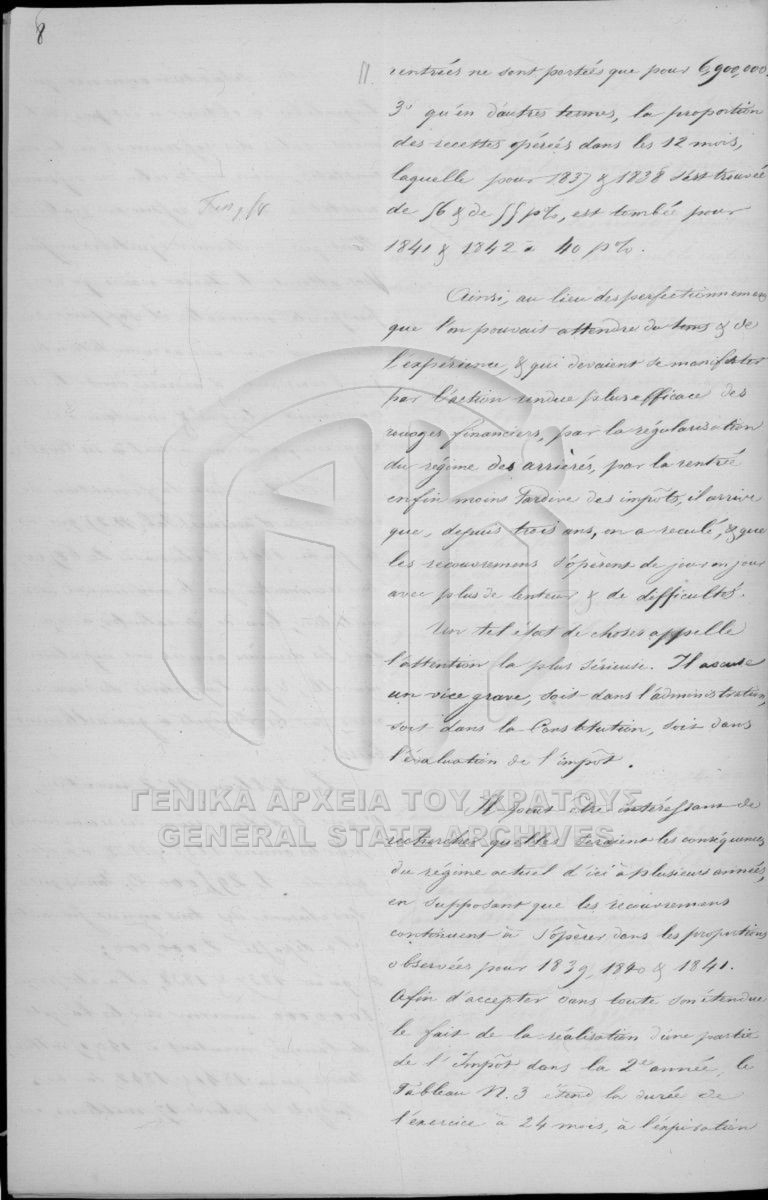 8
11.
rentrées ne sont portées que pour 6,900,000.
3° qu'en d'autres termes, la proportion
des recettes opérées dans les 12 mois,
laquelle pour 1837 & 1838 s'est trouvée
de 56 & de 55 p%, est tombée pour
1841 & 1842 à 40 p%.
Ainsi, au lieu des perfectionnemens
que l'on pouvait attendre du tems & de
l'expérience, & qui devaient se manifester
par l'action rendue plus efficace des
rouages financiers, par la régularisation
du régime des arriérés, par la rentrée
enfin moins tardive des impôts, il arrive
que, depuis trois ans, on a reculé, & que
les recouvremens s'opèrent de jour en jour
avec plus de lenteur & de difficultés.
Un tel état de choses appelle
l'attention la plus sérieuse. Il accuse
un vice grave, soit dans l'administration,
soit dans la Constitution, soit dans
l'évaluation de l'impôt.
ΓΕΝΙΚΑ ΑΡΧΕΙΑ ΤΟΥ ΚΡΑΤΟΥΣ
GENERAL STATE ARCHIVES
Il peut être intéressant de
rechercher quelles seraient les conséquences
du régime actuel d'ici à plusieurs années,
en supposant que les recouvremens
continuent à s'opérer dans les proportions
observées pour 1839, 1840 & 1841.
Afin d'accepter dans toute son étendue
le fait de la réalisation d'une partie
de l'Impôt dans la 2e année, le
Tableau N. 3 étend la durée de
l'exercice à 24 mois, à l'expiration